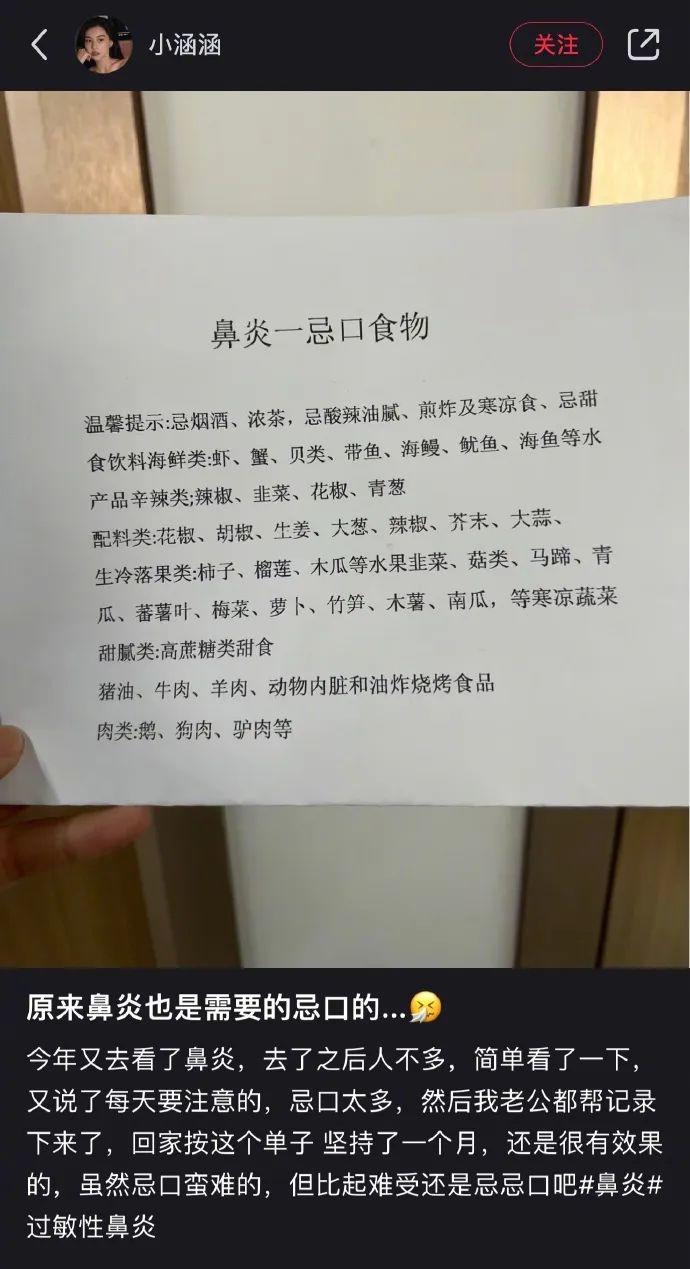 小涵涵
关注
鼻炎一忌口食物
温馨提示:忌烟酒、浓茶，忌酸辣油腻、煎炸及寒凉食、忌甜
食饮料海鲜类:虾、蟹、贝类、带鱼、海鳗、鱿鱼、海鱼等水
产品辛辣类;辣椒、韭菜、花椒、青葱
配料类:花椒、胡椒、生姜、大葱、辣椒、芥末、大蒜、
生冷落果类:柿子、榴莲、木瓜等水果韭菜、菇类、马蹄、青
瓜、蕃薯叶、梅菜、萝卜、竹笋、木薯、南瓜，等寒凉蔬菜
甜腻类:高蔗糖类甜食
猪油、牛肉、羊肉、动物内脏和油炸烧烤食品
肉类:鹅、狗肉、驴肉等
原来鼻炎也是需要的忌口的...🤧
今年又去看了鼻炎，去了之后人不多，简单看了一下，
又说了每天要注意的，忌口太多，然后我老公都帮记录
下来了，回家按这个单子 坚持了一个月，还是很有效果
的，虽然忌口蛮难的，但比起难受还是忌忌口吧#鼻炎#
过敏性鼻炎